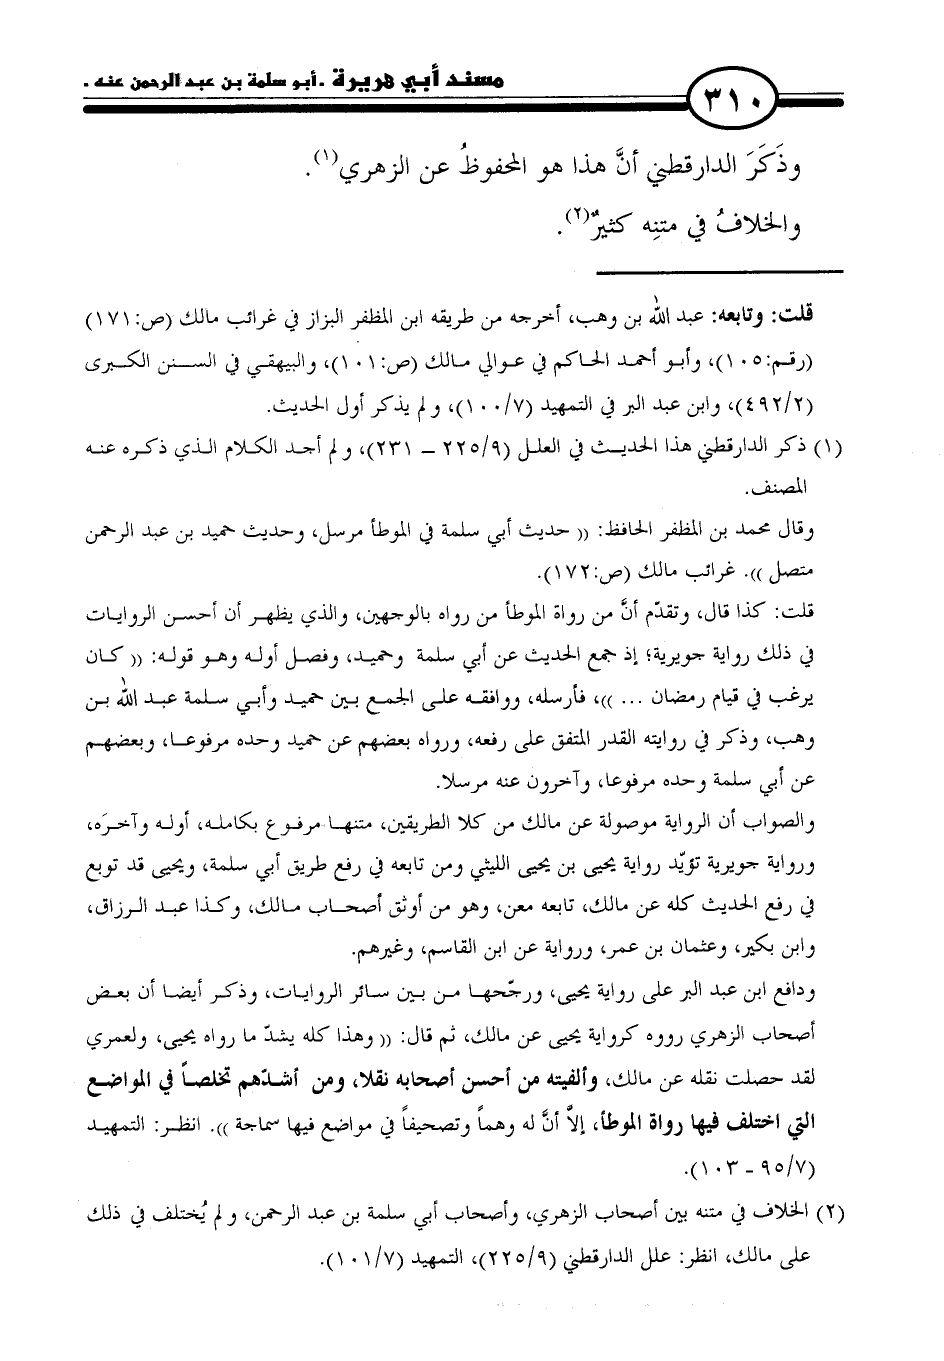 مسند أبي هريرة .أبو سلمة بن عبد الرحمن عنه .
٣١٠
وذَكَرَ الدارقطني أنَّ هذا هو المحفوظُ عن الزهري(١).
والخلافُ في متنِه كثيرٌ(٢).
قلت: وتابعه: عبد الله بن وهب، أخرجه من طريقه ابن المظفر البزاز في غرائب مالك (ص:١٧١)
(رقم:١٠٥)، وأبو أحمد الحاكم في عوالي مالك (ص:١٠١)، والبيهقي في السنن الكبرى
(٤٩٢/٢)، وابن عبد البر في التمهيد (١٠٠/٧)، ولم يذكر أول الحديث.
(١) ذكر الدارقطني هذا الحديث في العلل (٢٢٥/٩ ــ ٢٣١)، ولم أجد الكلام الذي ذكره عنه
المصنف.
وقال محمد بن المظفر الحافظ: (( حديث أبي سلمة في الموطأ مرسل، وحديث حميد بن عبد الرحمن
متصل )). غرائب مالك (ص:١٧٢).
قلت: كذا قال، وتقدّم أنَّ من رواة الموطأ من رواه بالوجهين، والذي يظهر أن أحسن الروايات
في ذلك رواية جويرية؛ إذ جمع الحديث عن أبي سلمة وحميد، وفصل أوله وهو قوله: (( كان
يرغب في قيام رمضان ... ))، فأرسله، ووافقه على الجمع بين حميد وأبي سلمة عبد الله بن
وهب، وذكر في روايته القدر المتفق على رفعه، ورواه بعضهم عن حميد وحده مرفوعا، وبعضهم
عن أبي سلمة وحده مرفوعا، وآخرون عنه مرسلا.
والصواب أن الرواية موصولة عن مالك من كلا الطريقين، متنها مرفوع بكامله، أوله وآخرَه،
ورواية جويرية تؤيّد رواية يحيى بن يحيى الليثي ومن تابعه في رفع طريق أبي سلمة، ويحيى قد توبع
في رفع الحديث كله عن مالك، تابعه معن، وهو من أوثق أصحاب مالك، وكذا عبد الرزاق،
وابن بكير، وعثمان بن عمر، ورواية عن ابن القاسم، وغيرهم.
ودافع ابن عبد البر على رواية يحيى، ورجّحها من بين سائر الروايات، وذكر أيضا أن بعض
أصحاب الزهري رووه كرواية يحيى عن مالك، ثم قال: (( وهذا كله يشدّ ما رواه يحيى، ولعمري
لقد حصلت نقله عن مالك، وألفيته من أحسن أصحابه نقلا، ومن أشدّهم تخلصاً في المواضع
التي اختلف فيها رواة الموطأ، إلاَّ أنَّ له وهماً وتصحيفاً في مواضع فيها سماجة )). انظر: التمهيد
(٩٥/٧ ـ ١٠٣).
(٢) الخلاف في متنه بين أصحاب الزهري، وأصحاب أبي سلمة بن عبد الرحمن، ولم يُختلف في ذلك
على مالك، انظر: علل الدارقطني (٢٢٥/٩)، التمهيد (١٠١/٧).